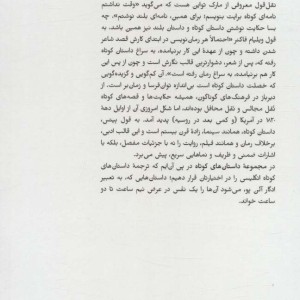 نقل‌قول معروفی از مارک تواین هست که می‌گوید «وقت نداشتم
نامه‌ای کوتاه برایت بنویسم؛ برای همین، نامه‌ای بلند نوشتم»، چه
بسا حکایت نوشتن داستان کوتاه و داستان بلند نیز همین باشد. به
قول ویلیام فاکنر «احتمالاً هر رمان‌نویس در ابتدای کارش قصد شاعر
شدن داشته و چون از عهدهٔ این کار برنیامده، به سراغ داستان کوتاه
رفته، که پس از شعر، دشوارترین قالب نگارش است؛ و چون از پس این
کار هم برنیامده به سراغ رمان رفته است». آن کم‌گویی و گزیده‌گویی
که خصلت داستان کوتاه است بی‌اندازه توان‌فرسا و زمان‌بر است. از
دیرباز در فرهنگ‌های گوناگون، همیشه حکایت‌ها و قصه‌های کوتاه
نقل مجالس و نقل محافل بوده‌اند، اما شکل امروزی آن از اوایل دههٔ
۱۸۲۰ در آمریکا (و کمی بعد در روسیه) پدید آمد. به قول پیتس،
داستان کوتاه، همانند سینما، زادهٔ قرن بیستم است و این قالب ادبی،
برخلاف رمان و همانند فیلم، روایت را نه با جزئیات مفصل، بلکه با
اشارات ضمنی و ظریف و نماهایی سریع، پیش می‌برد.
در مجموعهٔ داستان‌های کوتاه در پی آن‌ایم که ترجمهٔ داستان‌های
کوتاه انگلیسی را در اختیارتان قرار دهیم؛ داستان‌هایی که، به تعبیر
ادگار آلن پو، می‌شود آن‌ها را یک نفس در عرض نیم ساعت تا دو
ساعت خواند.